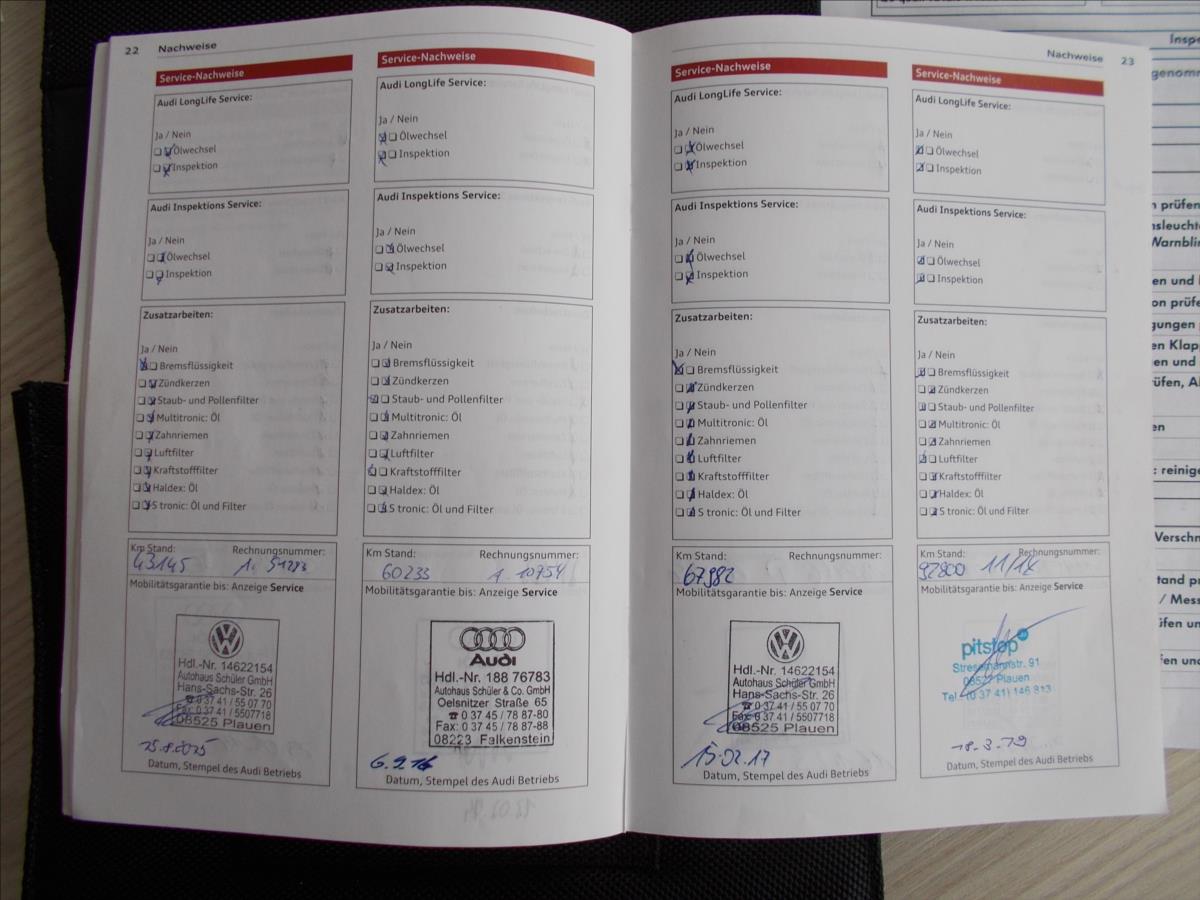 22 Nachweise
Service-Nachweise
Audi LongLife Service:
Ja / Nein
Ölwechsel
Inspektion
Audi Inspektions Service:
Ja / Nein
Ölwechsel
Inspektion
Zusatzarbeiten:
Ja / Nein
Bremsflüssigkeit
Zündkerzen
Staub- und Pollenfilter
Multitronic: Öl
Zahnriemen
Luftfilter
Kraftstofffilter
Haldex: Öl
S tronic: Öl und Filter
Km Stand: Rechnungsnummer:
43145
Mobilitätsgarantie bis: Anzeige Service
Hdl.-Nr. 14622154
Autohaus Schüler GmbH
Hans-Sachs-Str. 26
☎ 0 37 41 / 55 07 70
Fax: 0 37 41 / 5507718
08525 Plauen
Datum, Stempel des Audi Betriebs
Service-Nachweise
Audi LongLife Service:
Ja / Nein
Ölwechsel
Inspektion
Audi Inspektions Service:
Ja / Nein
Ölwechsel
Inspektion
Zusatzarbeiten:
Ja / Nein
Bremsflüssigkeit
Zündkerzen
Staub- und Pollenfilter
Multitronic: Öl
Zahnriemen
Luftfilter
Kraftstofffilter
Haldex: Öl
S tronic: Öl und Filter
Km Stand: Rechnungsnummer:
60233 1. 10754
Mobilitätsgarantie bis: Anzeige Service
Audi
Hdl.-Nr. 188 76783
Autohaus Schüler & Co. GmbH
Oelsnitzer Straße 65
☎ 0 37 45 / 78 87-80
Fax: 0 37 45 / 78 87-88
08223 Falkenstein
6.9.16
Datum, Stempel des Audi Betriebs
Nachweise 23
Service-Nachweise
Audi LongLife Service:
Ja / Nein
Ölwechsel
Inspektion
Audi Inspektions Service:
Ja / Nein
Ölwechsel
Inspektion
Zusatzarbeiten:
Ja / Nein
Bremsflüssigkeit
Zündkerzen
Staub- und Pollenfilter
Multitronic: Öl
Zahnriemen
Luftfilter
Kraftstofffilter
Haldex: Öl
S tronic: Öl und Filter
Km Stand: Rechnungsnummer:
67982
Mobilitätsgarantie bis: Anzeige Service
Hdl.-Nr. 14622154
Autohaus Schüler GmbH
Hans-Sachs-Str. 26
☎ 0 37 41 / 55 07 70
Fax: 0 37 41 / 5507718
08525 Plauen
15.02.17
Datum, Stempel des Audi Betriebs
Service-Nachweise
Audi LongLife Service:
Ja / Nein
Ölwechsel
Inspektion
Audi Inspektions Service:
Ja / Nein
Ölwechsel
Inspektion
Zusatzarbeiten:
Ja / Nein
Bremsflüssigkeit
Zündkerzen
Staub- und Pollenfilter
Multitronic: Öl
Zahnriemen
Luftfilter
Kraftstofffilter
Haldex: Öl
S tronic: Öl und Filter
Km Stand: Rechnungsnummer:
92800
Mobilitätsgarantie bis: Anzeige Service
pitstop
Stresemannstr. 91
08527 Plauen
Datum, Stempel des Audi Betriebs
Inspe
genomm
n prüfen
nsleucht
Warnblin
en und
on prüfe
gungen
en Klapp
en und
üfen, Al
en
: reinige
Verschn
tand pr
/ Mess
üfen un
fen und